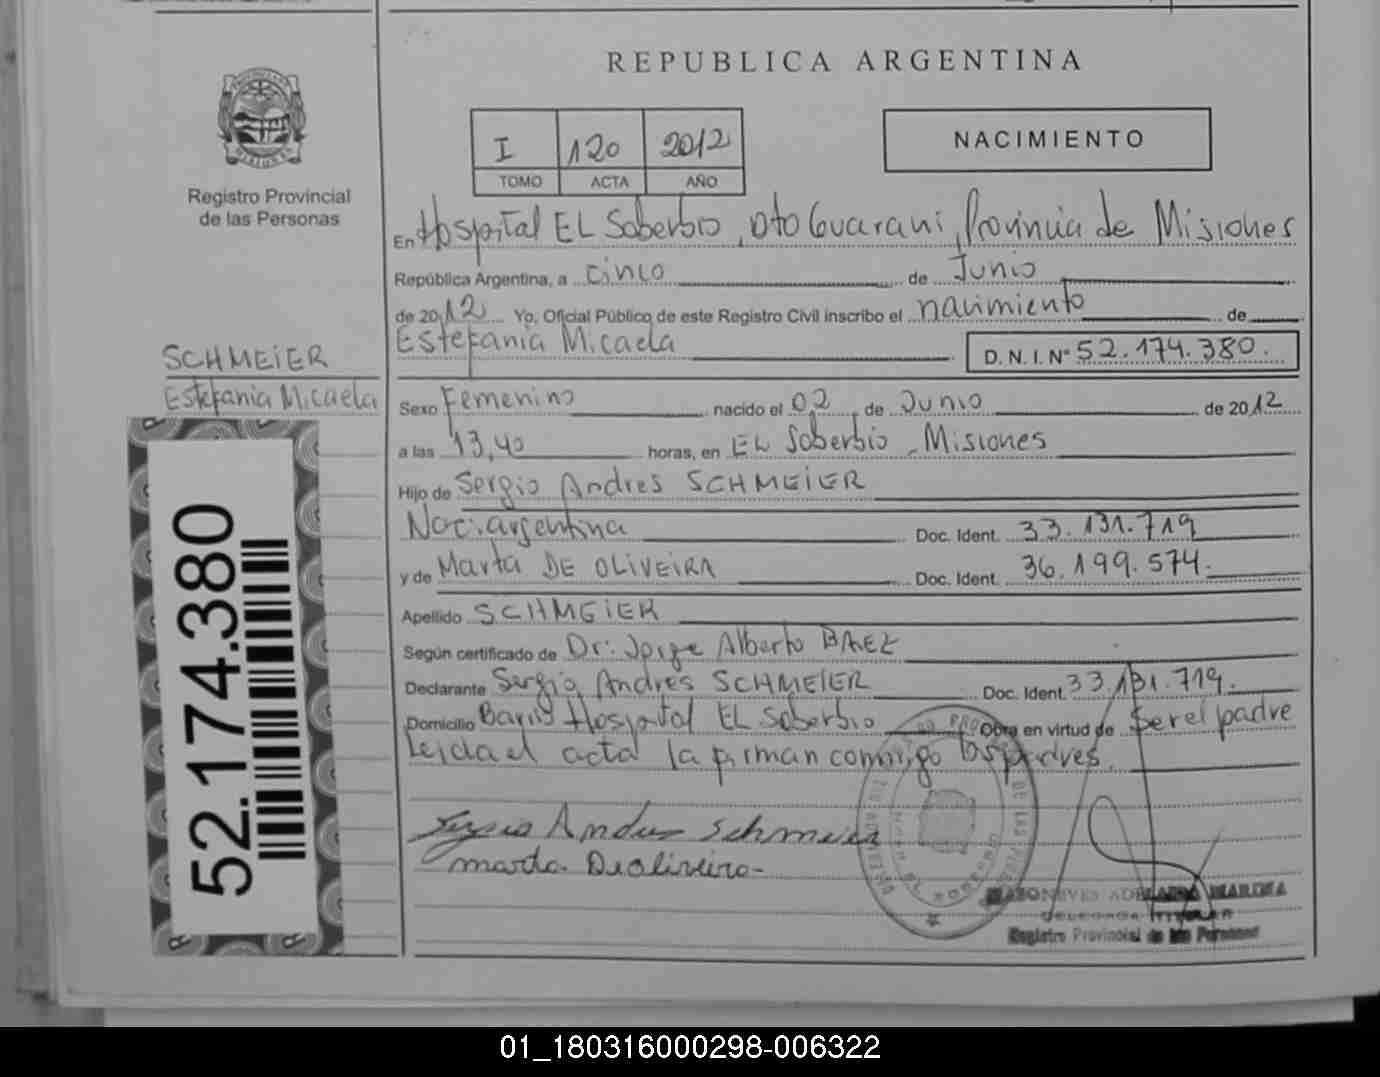 REPUBLICA ARGENTINA
I 120 2012
TOMO ACTA AÑO
NACIMIENTO
Registro Provincial
de las Personas
En Hospital EL Soberbio, Dto Guarani, Provincia de Misiones
República Argentina, a cinco de Junio
de 2012 Yo, Oficial Público de este Registro Civil inscribo el nacimiento de
Estefania Micaela D.N.I. Nº 52.174.380.
SCHMEiER
Estefania Micaela
Sexo Femenino nacido el 02 de Junio de 2012
a las 13,40 horas, en EL Soberbio - Misiones
Hijo de Sergio Andres SCHMEiER
Nac. argentina Doc. Ident. 33.131.719
y de Marta DE OLIVEIRA Doc. Ident. 36.199.574.
Apellido SCHMEiER
Según certificado de Dr: Jorge Alberto BAEZ
Declarante Sergio Andres SCHMEIER Doc. Ident. 33.131.719.
Domicilio Barrio Hospital EL Soberbio Obra en virtud de Ser el padre
Leida el acta la firman conmigo los padres.
Sergio Andres Schmeier
marta De oliveira
DELEGADA TITULAR
Registro Provincial de las Personas
52.174.380
01_180316000298-006322